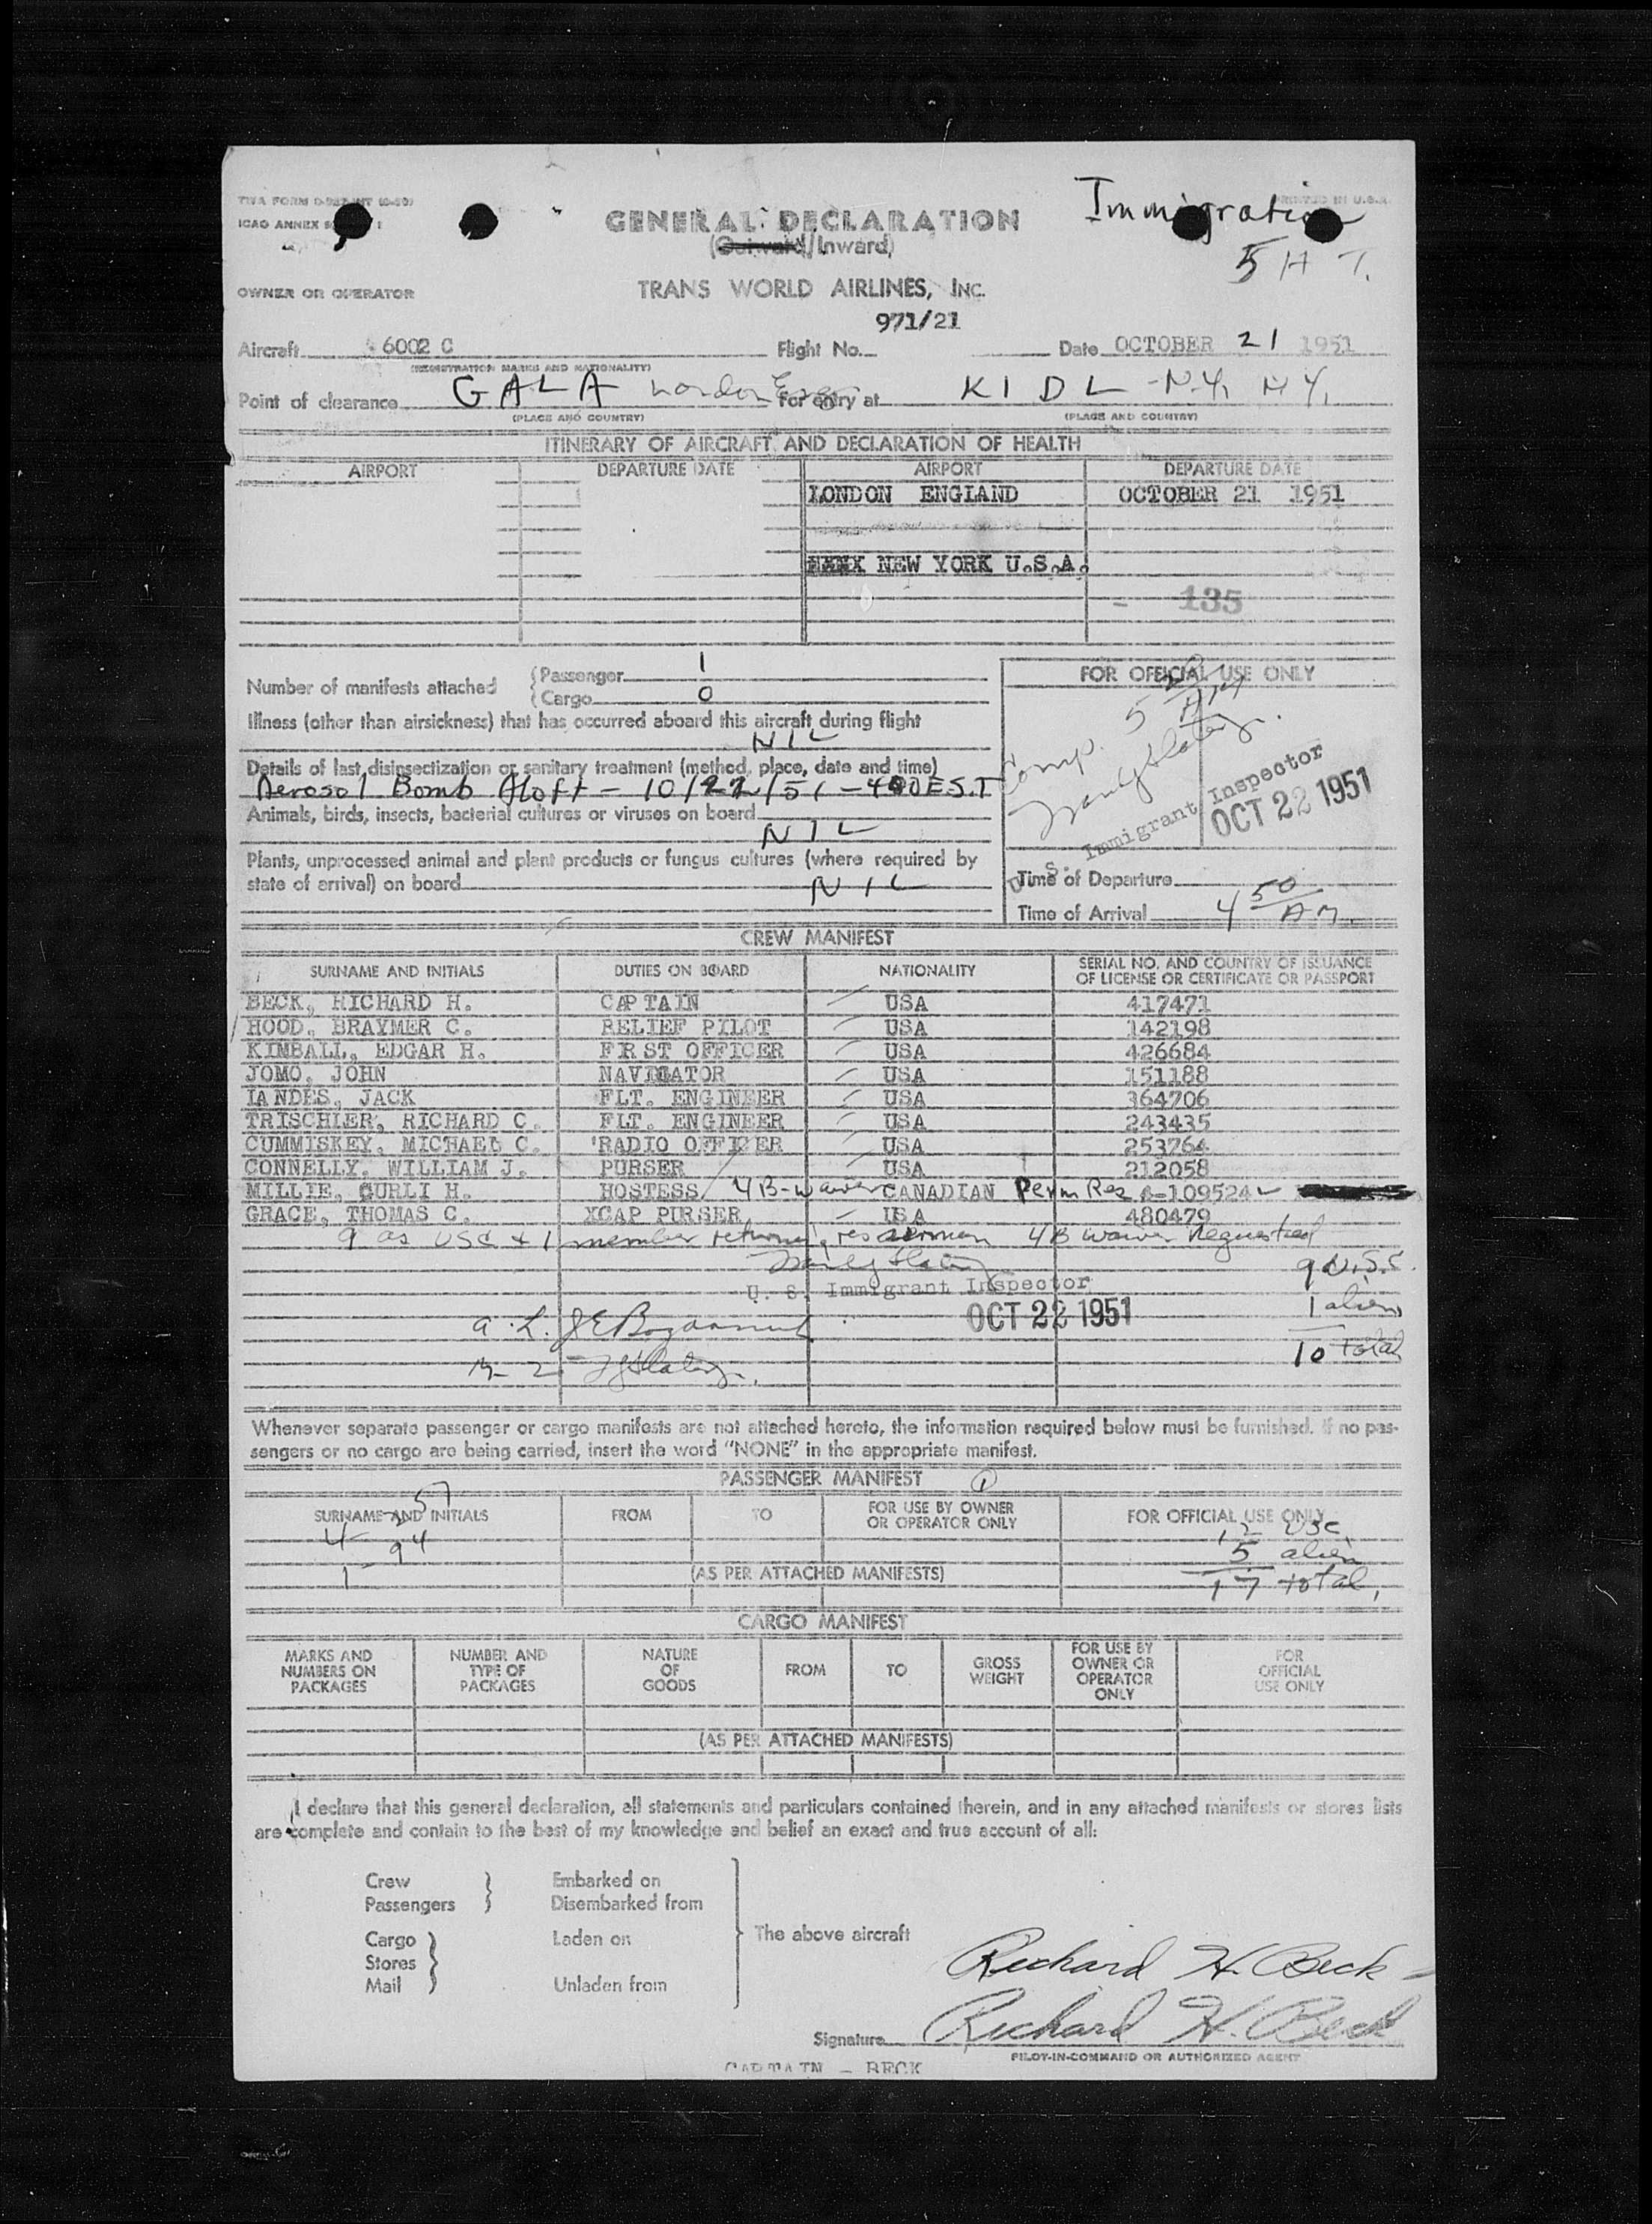 TWA FORM
ICAO ANNEX
Immigration
PRINTED IN U.S.A.
GENERAL DECLARATION
(Outward/Inward)
5 H T.
OWNER OR OPERATOR TRANS WORLD AIRLINES, INC.
971/21
Aircraft 6002 C Flight No. Date OCTOBER 21 1951
(REGISTRATION MARKS AND NATIONALITY)
Point of clearance GALA London Eng For entry at KIDL - N.Y. N.Y.
(PLACE AND COUNTRY) (PLACE AND COUNTRY)
ITINERARY OF AIRCRAFT AND DECLARATION OF HEALTH
AIRPORT DEPARTURE DATE AIRPORT DEPARTURE DATE
LONDON ENGLAND OCTOBER 21 1951
NEW YORK U.S.A.
- 135
Number of manifests attached { Passenger 1
{ Cargo 0
FOR OFFICIAL USE ONLY
Illness (other than airsickness) that has occurred aboard this aircraft during flight
NIL
Details of last disinsectization or sanitary treatment (method, place, date and time)
Aerosol Bomb Aloft - 10/22/51 - 400 E.S.T
Animals, birds, insects, bacterial cultures or viruses on board
NIL
Plants, unprocessed animal and plant products or fungus cultures (where required by
state of arrival) on board NIL
Comp. 5
U. S. Immigrant Inspector
OCT 22 1951
Time of Departure
Time of Arrival 4 50 AM.
CREW MANIFEST
SURNAME AND INITIALS DUTIES ON BOARD NATIONALITY SERIAL NO. AND COUNTRY OF ISSUANCE
OF LICENSE OR CERTIFICATE OR PASSPORT
BECK, RICHARD H. CAPTAIN USA 417471
HOOD, BRAYMER C. RELIEF PILOT USA 142198
KIMBALL, EDGAR H. FRST OFFICER USA 426684
JOMO, JOHN NAVIGATOR USA 151188
LANDES, JACK FLT. ENGINEER USA 364706
TRISCHLER, RICHARD C. FLT. ENGINEER USA 243435
CUMMISKEY, MICHAEL C. RADIO OFFICER USA 253764
CONNELLY, WILLIAM J. PURSER USA 212058
MILLIE, GURLI H. HOSTESS 4B-waiver CANADIAN Perm Res A-109524
GRACE, THOMAS C. XCAP PURSER USA 480479
9 as USC & 1 member return res 4B waiver Requested
9 U.S.C.
U. S. Immigrant Inspector
OCT 22 1951
1 alien
10 total
Whenever separate passenger or cargo manifests are not attached hereto, the information required below must be furnished. If no pas-
sengers or no cargo are being carried, insert the word "NONE" in the appropriate manifest.
PASSENGER MANIFEST 1
SURNAME AND INITIALS FROM TO FOR USE BY OWNER
OR OPERATOR ONLY FOR OFFICIAL USE ONLY
12 USC
5 alien
(AS PER ATTACHED MANIFESTS) 17 total
CARGO MANIFEST
MARKS AND
NUMBERS ON
PACKAGES
NUMBER AND
TYPE OF
PACKAGES
NATURE
OF
GOODS
FROM
TO
GROSS
WEIGHT
FOR USE BY
OWNER OR
OPERATOR
ONLY
FOR
OFFICIAL
USE ONLY
(AS PER ATTACHED MANIFESTS)
I declare that this general declaration, all statements and particulars contained therein, and in any attached manifests or stores lists
are complete and contain to the best of my knowledge and belief an exact and true account of all:
Crew } Embarked on
Passengers } Disembarked from
Cargo } Laden on The above aircraft
Stores }
Mail } Unladen from
Richard H. Beck
Signature Richard H. Beck
PILOT-IN-COMMAND OR AUTHORIZED AGENT
CAPTAIN - BECK